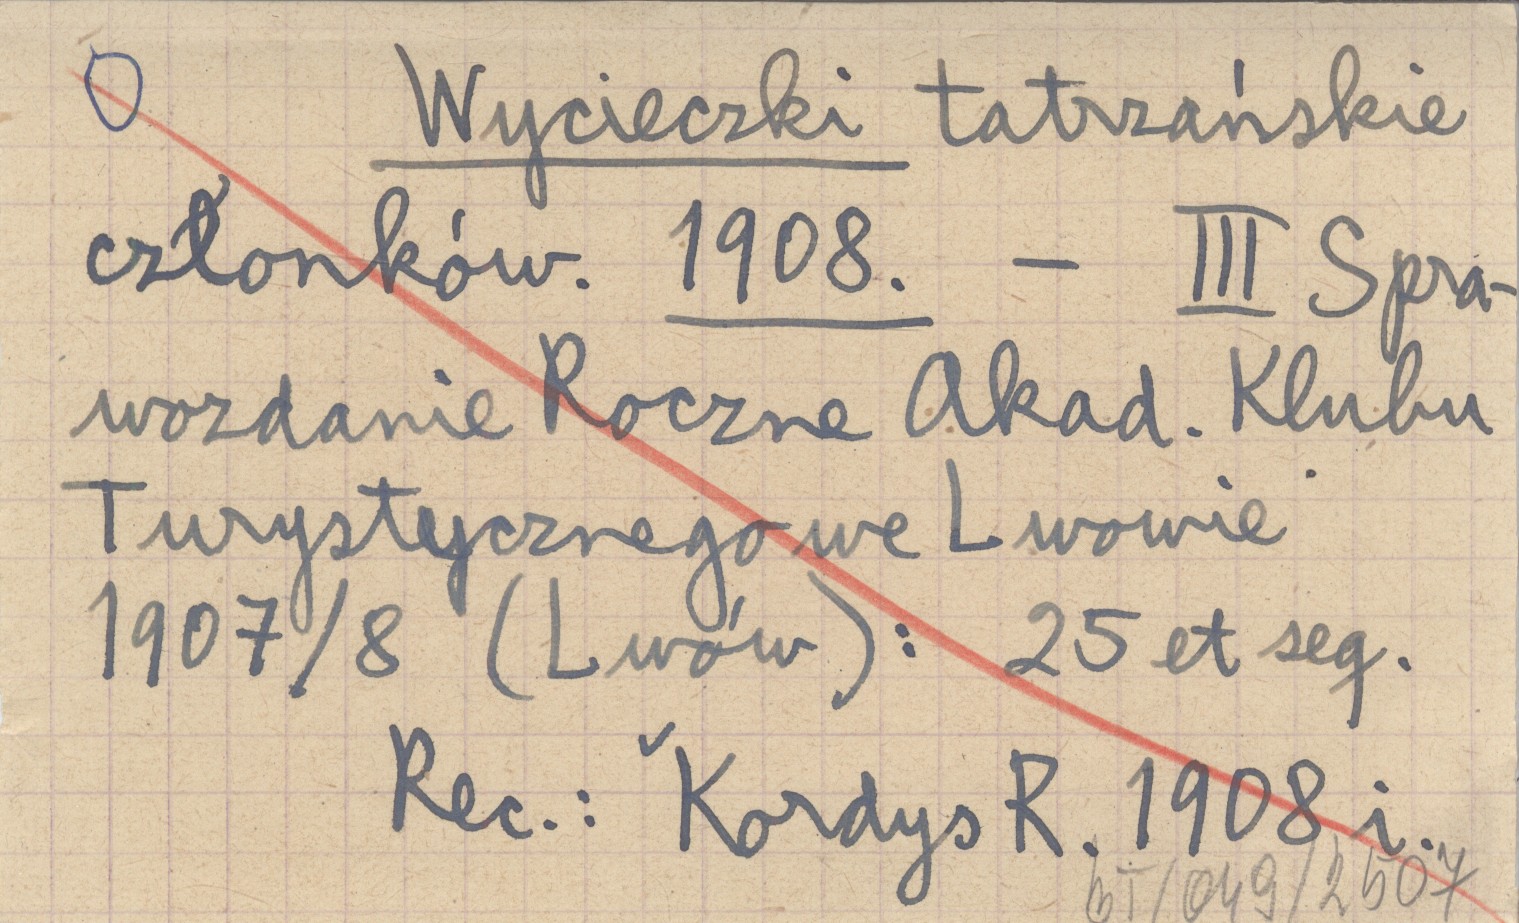 Wycieczki tatrzańskie
członków. 1908. – III Spra-
wozdanie Roczne Akad. Klubu
Turystycznego we Lwowie
1907/8 (Lwów): 25 et seq.
Rec.: Kordys R. 1908 i.
/049/2507